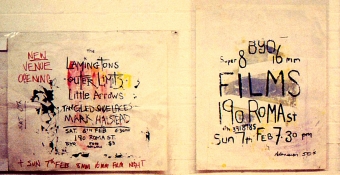 the
NEW
VENUE
OPENING
LEMINGTONS
OUTER LIMITS
Little Arrows
TANGLED SHOELACES
MARK HALSTEAD
SAT 6TH FEB
190 ROMA ST
+ SUN 7TH FEB
FILM NIGHT
BYO/
Super 8 16 mm
FILMS
190 ROMA st
Sun 7th FEB 7.30 pm
Admission